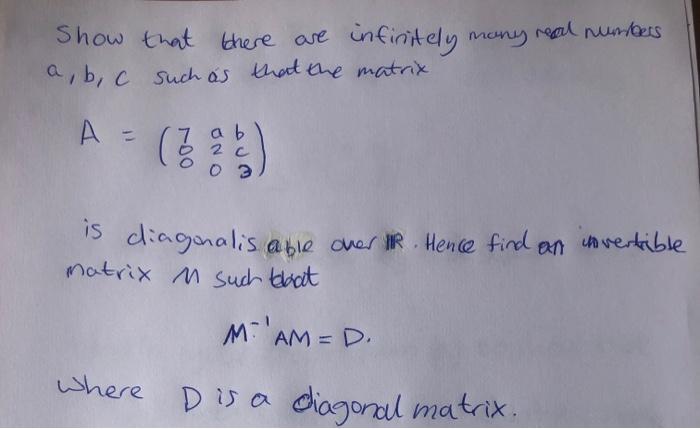 Show that there are infinitely many real numbers
a, b, c such as that the matrix
A = ( 7 a b
0 2 c
0 0 3 )
is diagonalisable over ℝ. Hence find an invertible
matrix M such that
M⁻¹AM = D.
where D is a diagonal matrix.